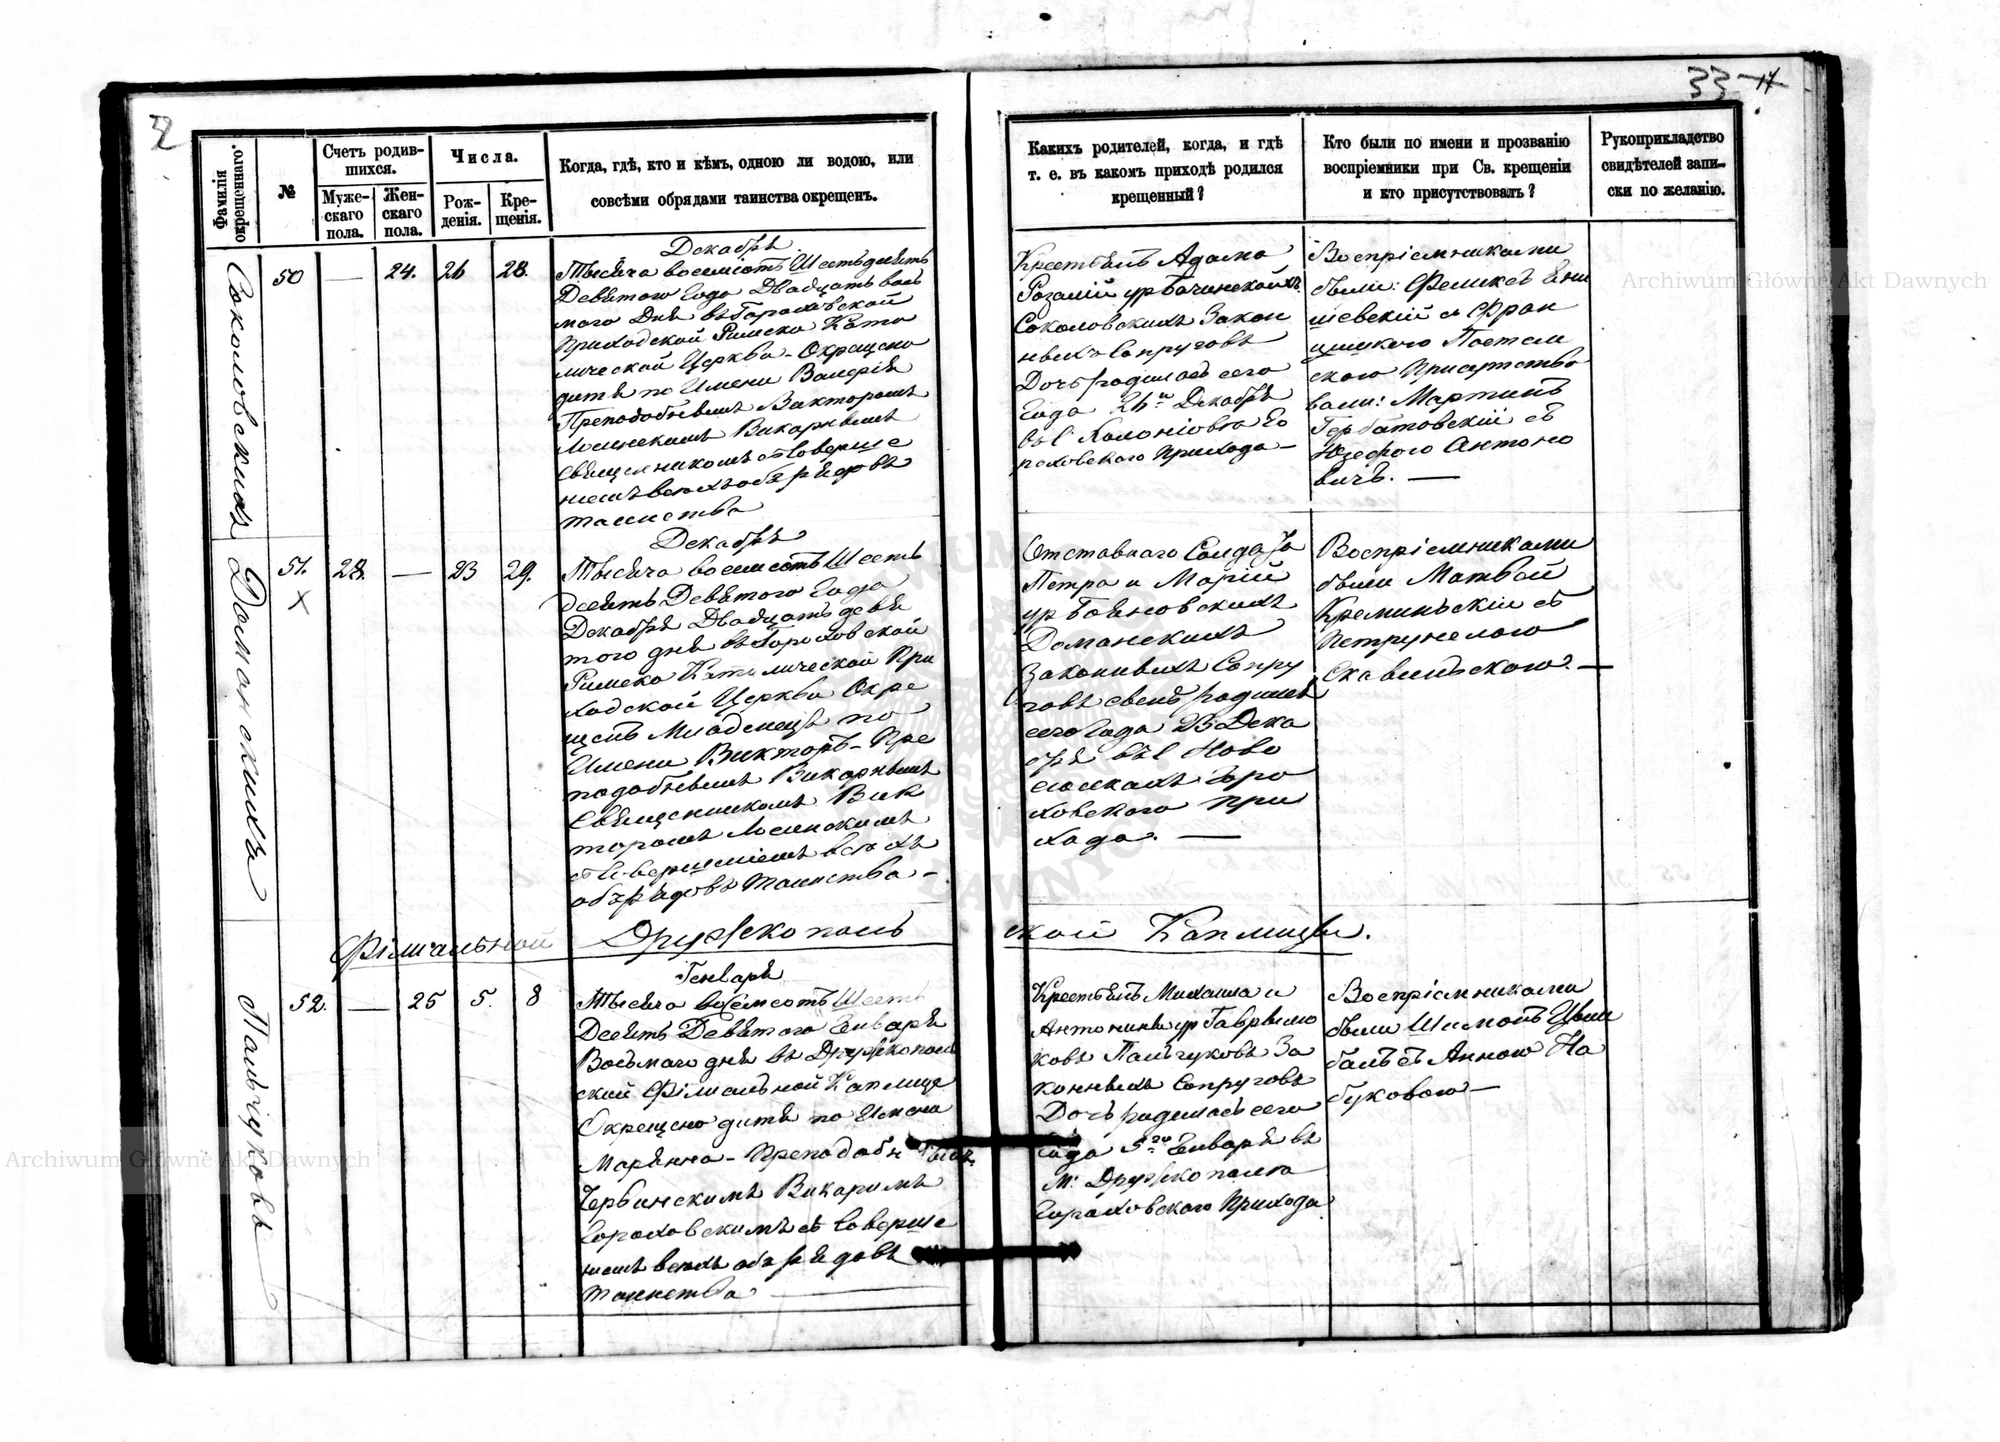 33 17
Фамилія окрещеннаго.
№
Счетъ родив-
шихся.
Муже-
скаго
пола.
Жен-
скаго
пола.
Числа.
Рож-
денія.
Кре-
щенія.
Когда, гдѣ, кто и кѣмъ, одною ли водою, или
совсѣми обрядами таинства окрещенъ.
Какихъ родителей, когда, и гдѣ
т. е. въ какомъ приходѣ родился
крещенный?
Кто были по имени и прозванію
воспріемники при Св. крещеніи
и кто присутствовалъ?
Рукоприкладство
свидѣтелей запи-
ски по желанію.
Соколовскихъ
50 — 24. 26 28.
Декабря
Тысяча восемсотъ Шестьдесятъ
Девятого Года Двадцать вось
мого Дня въ Гороховской
Приходской Римско Като
лической Церкви - Окрещено
дитя по Имени Валерія
Преподобнымъ Викторомъ
Викарнымъ
Священникомъ съ Соверше
ніемъ всехъ обрядовъ
таинства
Крестьянъ Адама
Розаліи ур
Соколовскихъ Закон
ныхъ Супруговъ
Дочь родилась сего
Года 26го Декабря
въ С Го
роховского Прихода —
Воспріемниками
были: Феликсъ
и Фран
Присутство
вали: Мартинъ
съ
Юзефою Антоно
вичъ. —
Доманскихъ
51. 28. — 23 29.
X
Декабря
Тысяча восемсотъ Шесть
десятъ Девятого Года
Декабря Двадцать девя
того дня въ Гороховской
Римско Католической При
ходской Церкви Окре
щенъ Младенецъ по
Имени Викторъ - Пре
подобнымъ Викарнымъ
Священникомъ Вик
торомъ
съ Совершеніемъ всехъ
обрядовъ Таинства -
Отставного Солдата
Петра и Маріи
ур Бояновскихъ
Доманскихъ
Законныхъ Супру
говъ сынъ родился
сего Года 23 Дека
бря въ С Ново
селкахъ Горо
ховского При
хода. —
Воспріемниками
были Матвѣй
Креминьскій съ
Петрунелою
Скавиньскою. —
Філіальной Дружкополь
ской Каплицы.
Пальчуковъ
52. — 25 5. 8
Генваря
Тысяча восемсотъ Шесть
Десятъ Девятого Енваря
Восьмаго дня въ Дружкополь
ской Філіальной Каплице
Окрещено дитя по Имени
Маріянна - Преподобнымъ
Червинскимъ Викаримъ
Гороховскимъ съ Соверше
ніемъ всехъ обрядовъ
таинства
Крестьянъ Михаила и
Антонины ур Гаврилю
ковъ Пальчуковъ За
конныхъ Супруговъ
Дочь родилась сего
Года 5го Енваря въ
М: Дружкополю
Гороховского Прихода
Воспріемниками
были Шимонъ Цым
балъ съ Анною На
буковою —
Archiwum Główne Akt Dawnych
Archiwum Główne Akt Dawnych